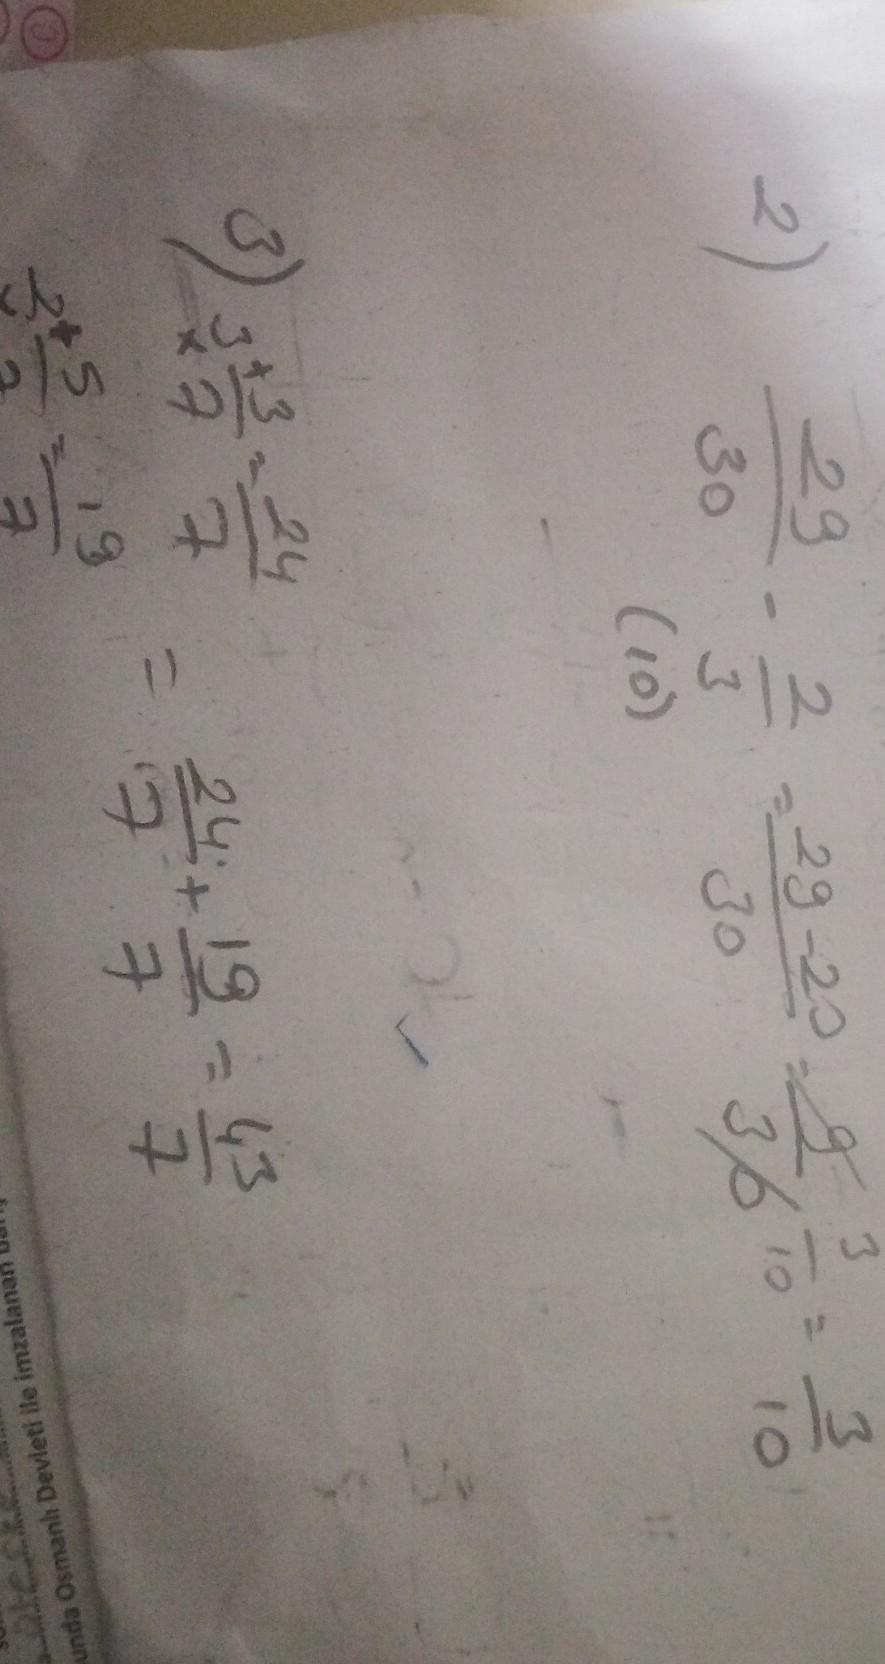 2) 29/30 - 2/3 = 29-20/30 = 9/30 3/10 = 3/10
(10)
3) 3 + 3/7 = 24/7
×
= 24/7 + 19/7 = 43/7
2 + 5/7 = 19/7
×
unda Osmanlı Devleti ile imzalanan